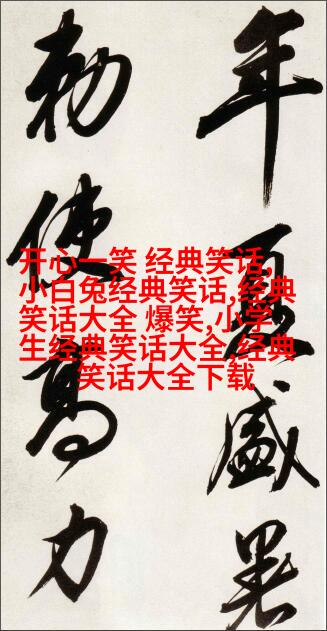 年夏盛暑
勅使高力
开心一笑 经典笑话,
小白兔经典笑话,经典
笑话大全 爆笑,小学
生经典笑话大全,经典
笑话大全下载